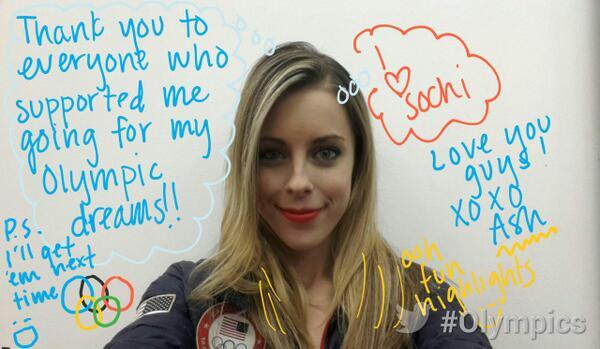 Thank you to
everyone who
supported me
going for my
Olympic
dreams!!
P.S.
I'll get
'em next
time
I ♡
Sochi
Love you
guys!
XOXO
Ash
ooh
fun
highlights
#Olympics